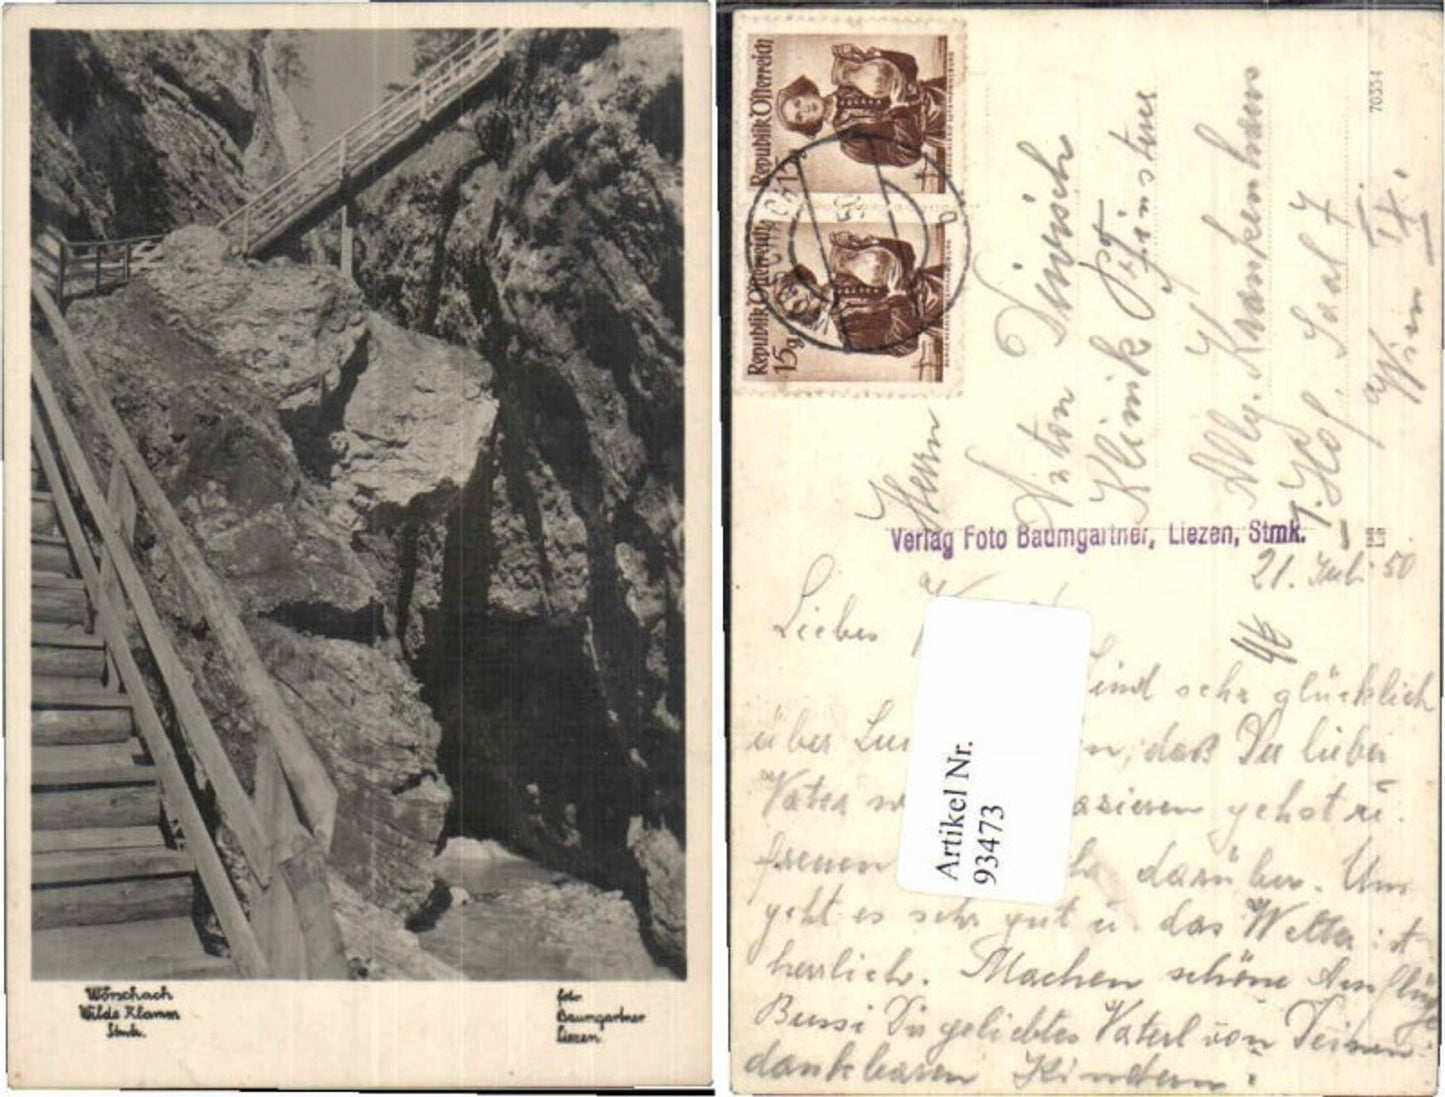 Wörschach
Wilde Klamm
Stmk.
foto
Baumgartner
Liezen
Republik Österreich
Republik Österreich
15g
70334
Herrn
Anton
Klinik
Allg. Krankenhaus
1. Hof, Saal 7
Wien IX.
Verlag Foto Baumgartner, Liezen, Stmk.
21. Juli 50
Liebes
Sind sehr glücklich
über daß Du lieber
Vater gehst u.
freuen darüber. Uns
geht es sehr gut u. das Wetter ist
herrlich. Machen schöne Ausflüge
Bussi Dir geliebtes Vaterl von Deinen
dankbaren Kindern.
Artikel Nr.
93473